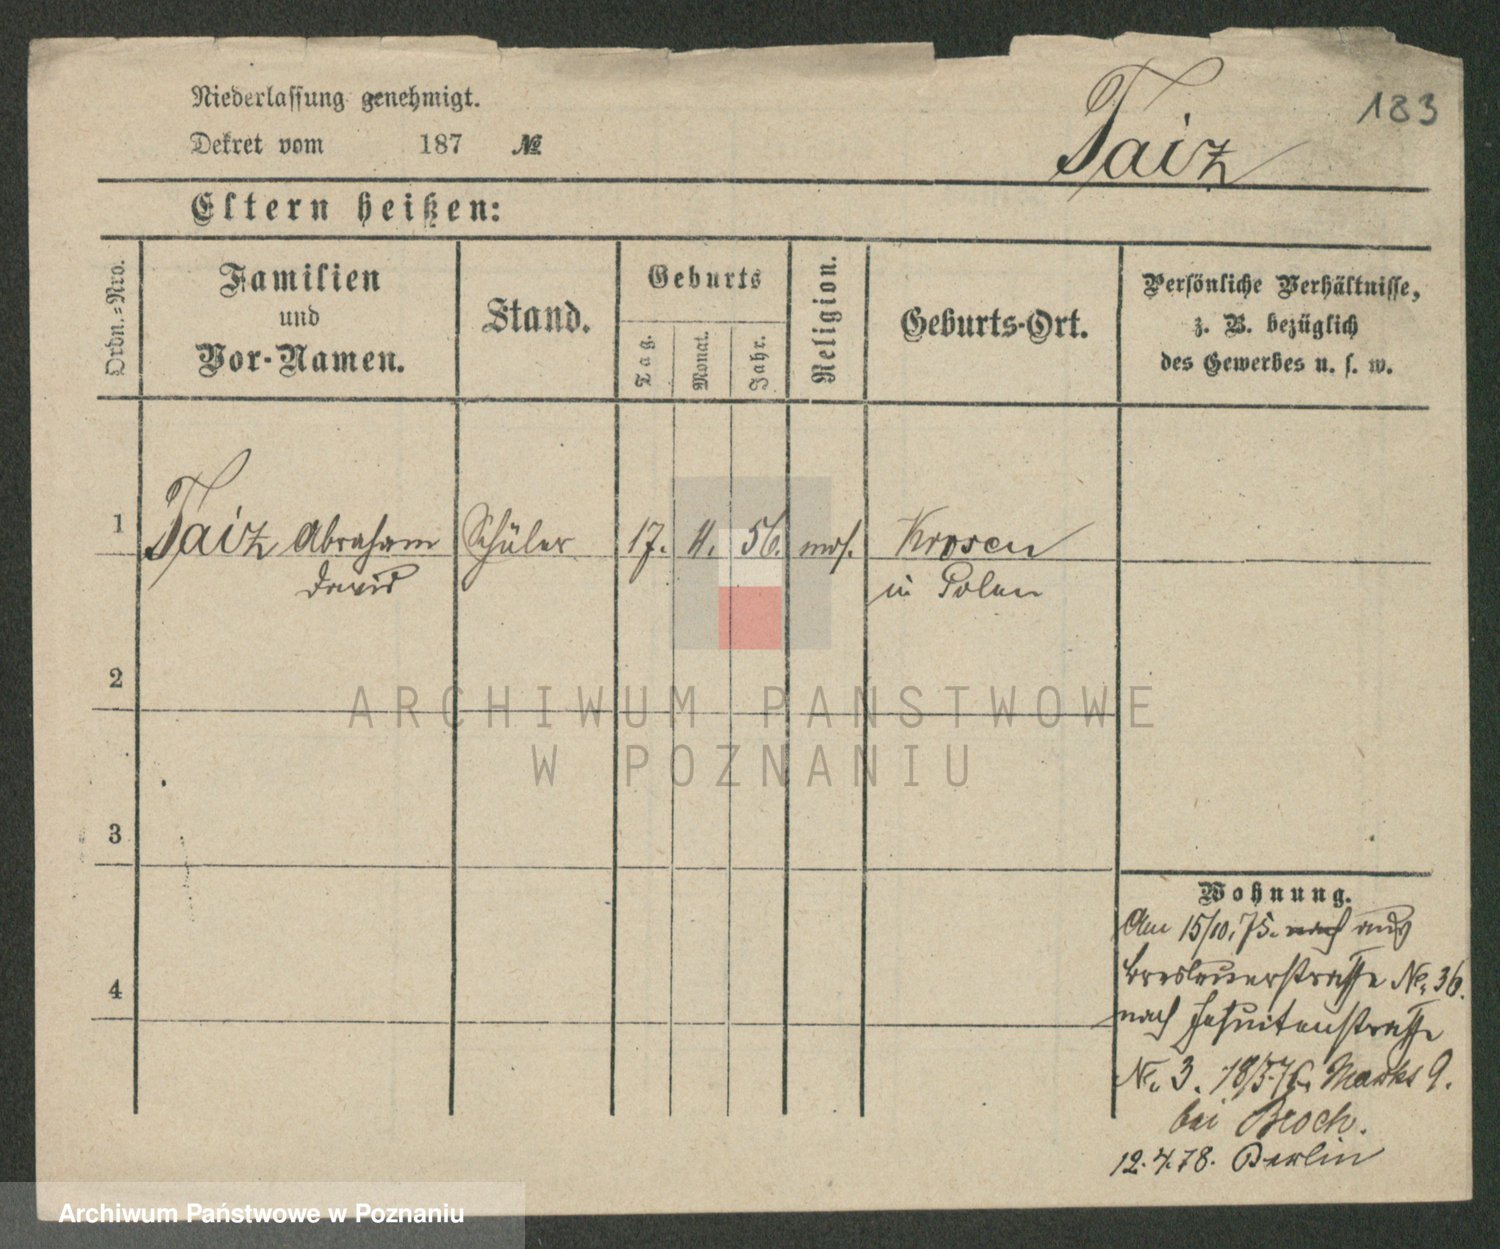 183
Taiz
Niederlassung genehmigt.
Dekret vom 187 №
Eltern heißen:
Ordn.=Nro.
Familien
und
Vor-Namen.
Stand.
Geburts
Tag.
Monat.
Jahr.
Religion.
Geburts-Ort.
Persönliche Verhältnisse,
z. B. bezüglich
des Gewerbes u. s. w.
1 Taiz Abraham Schüler 17. 4. 56. mos. Krosen
David in Polen
2
3
4
Wohnung.
Am 15/10. 75. nach aus
Breslauerstrasse No. 36.
nach Jesuitenstrasse
No. 3. 18/5.76. Markt 9.
bei Bloch.
12.4.78. Berlin
ARCHIWUM PAŃSTWOWE
W POZNANIU
Archiwum Państwowe w Poznaniu